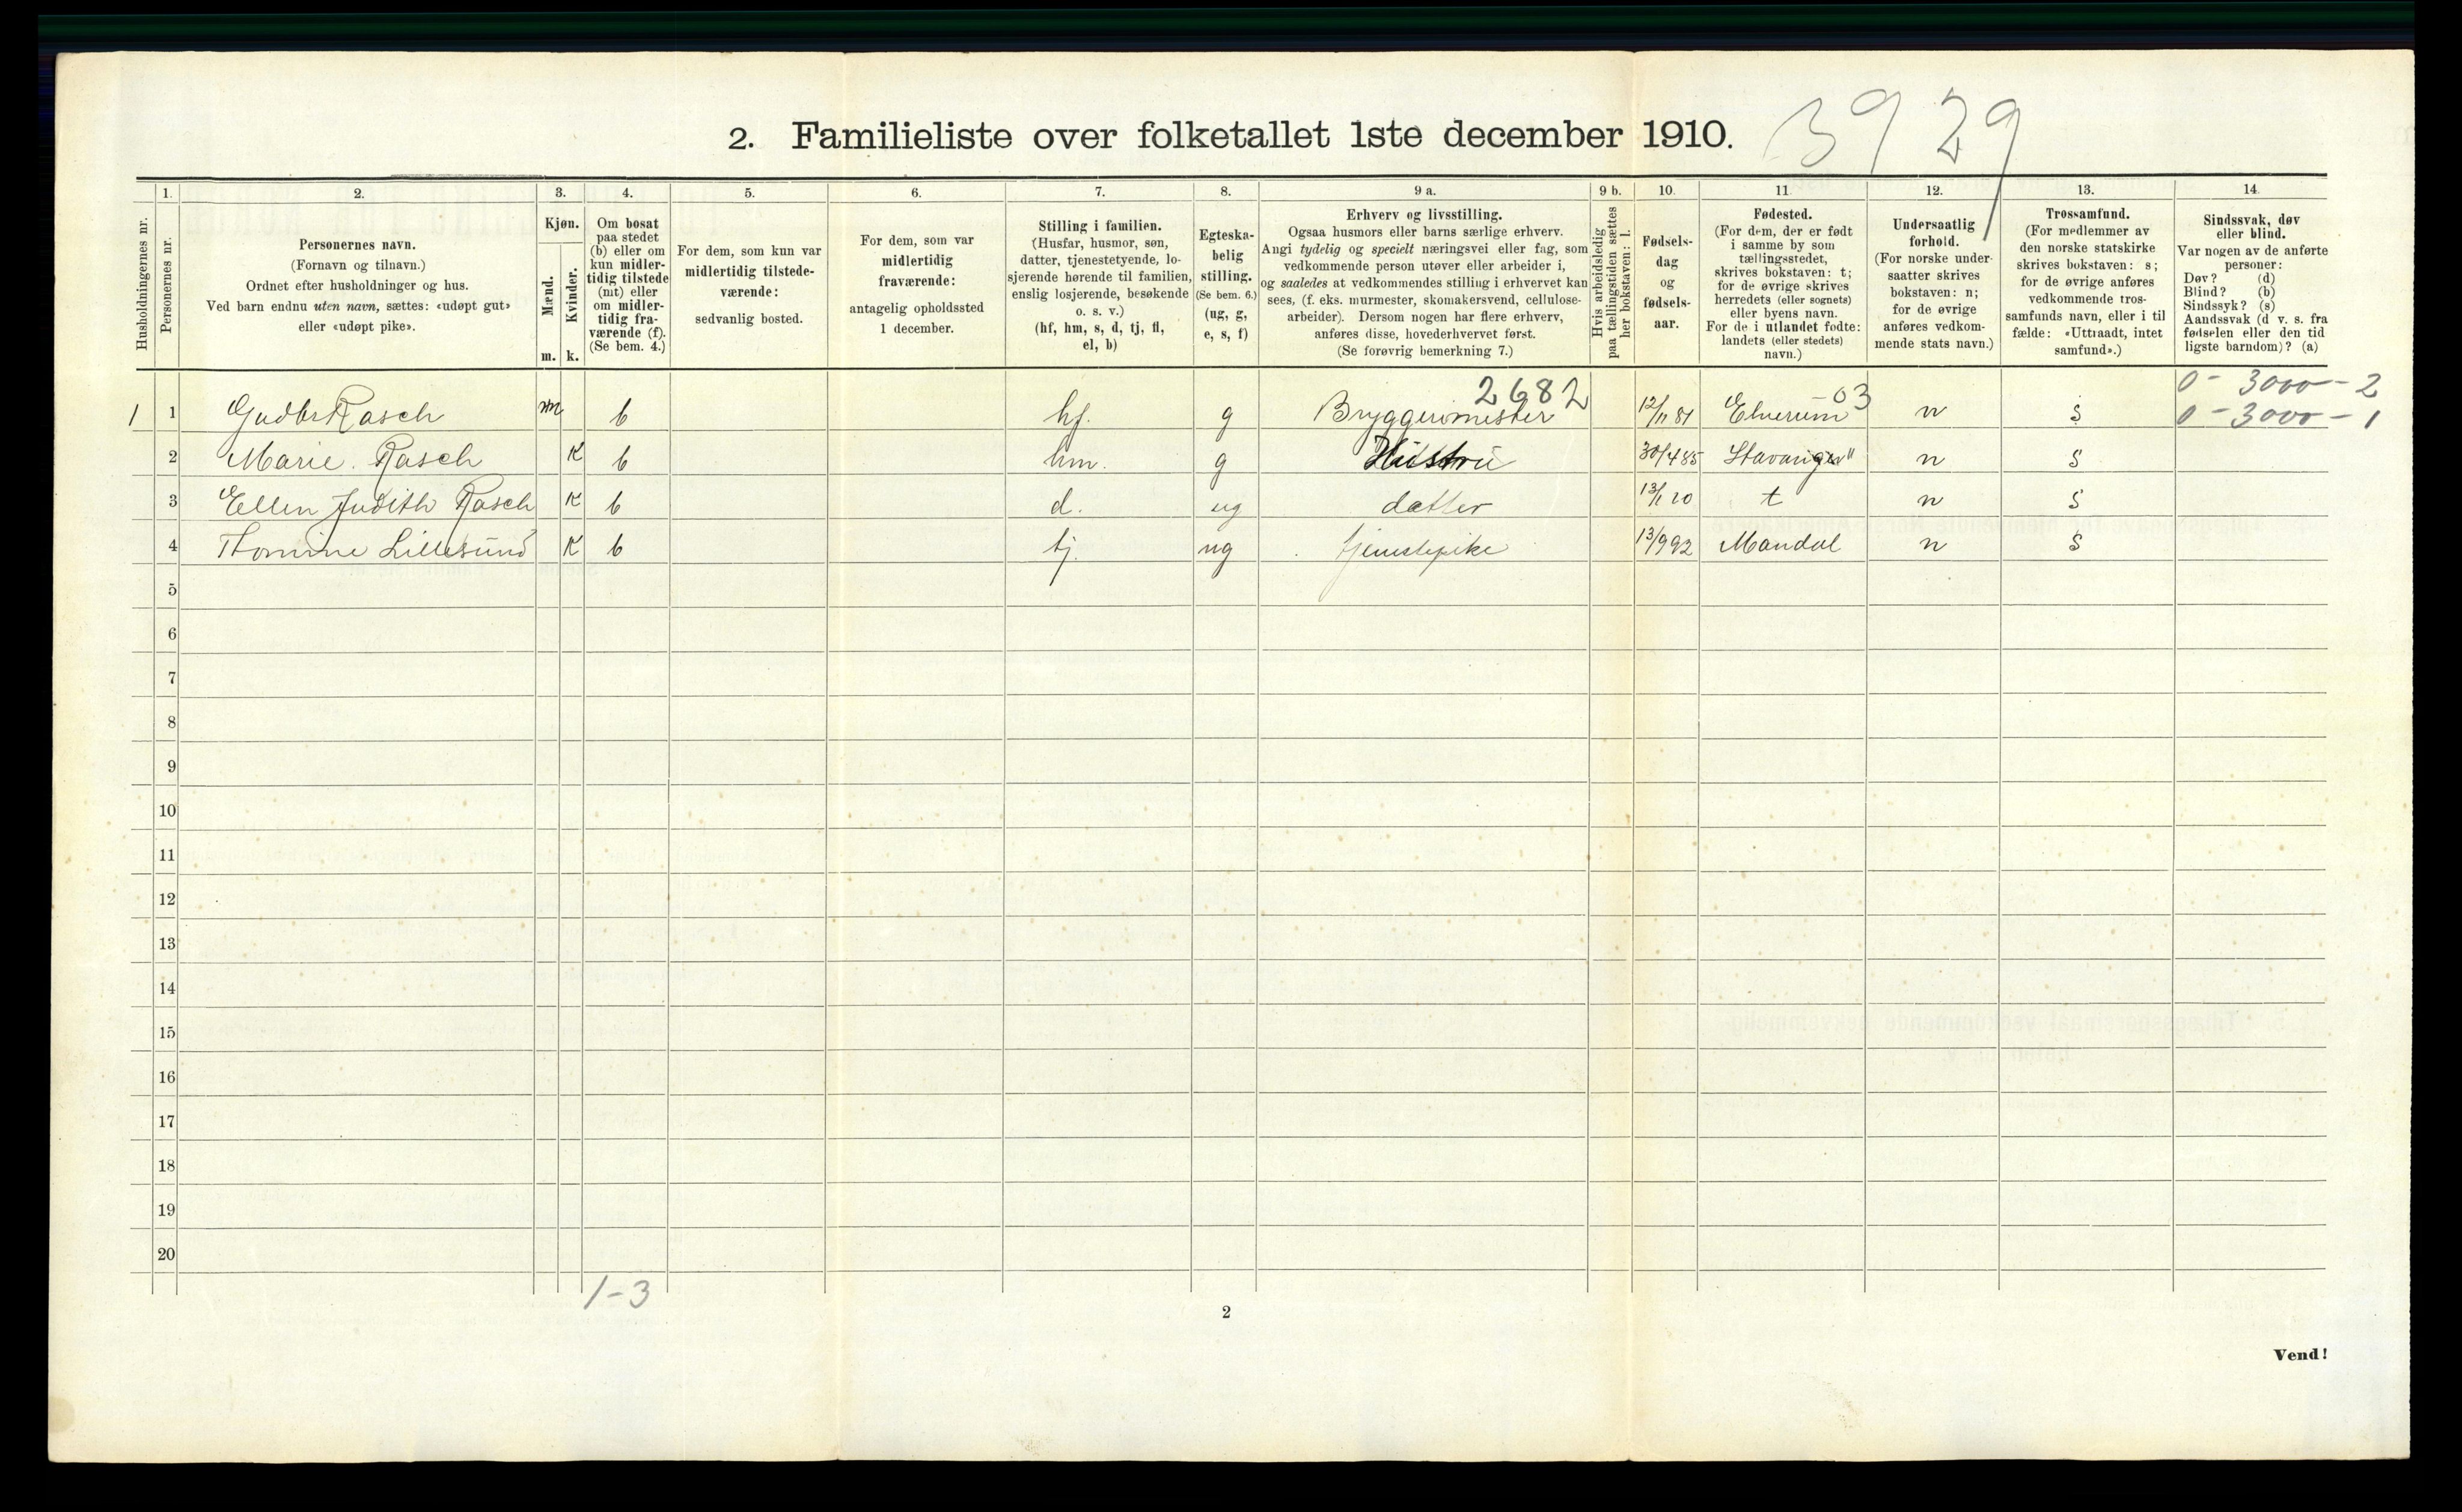 3929
2. Familieliste over folketallet 1ste december 1910.
1. 2. 3. 4. 5. 6. 7. 8. 9 a. 9 b. 10. 11. 12. 13. 14.
Husholdningernes nr.
Personernes nr.
Personernes navn.
(Fornavn og tilnavn.)
Ordnet efter husholdninger og hus.
Ved barn endnu uten navn, sættes: «udøpt gut»
eller «udøpt pike».
Kjøn.
Mænd.
Kvinder.
m. k.
Om bosat
paa stedet
(b) eller om
kun midler-
tidig tilstede
(mt) eller
om midler-
tidig fra-
værende (f).
(Se bem. 4.)
For dem, som kun var
midlertidig tilstede-
værende:
sedvanlig bosted.
For dem, som var
midlertidig
fraværende:
antagelig opholdssted
1 december.
Stilling i familien.
(Husfar, husmor, søn,
datter, tjenestetyende, lo-
sjerende hørende til familien,
enslig losjerende, besøkende
o. s. v.)
(hf, hm, s, d, tj, fl,
el, b)
Egteska-
belig
stilling.
(Se bem. 6.)
(ug, g,
e, s, f)
Erhverv og livsstilling.
Ogsaa husmors eller barns særlige erhverv.
Angi tydelig og specielt næringsvei eller fag, som
vedkommende person utøver eller arbeider i,
og saaledes at vedkommendes stilling i erhvervet kan
sees, (f. eks. murmester, skomakersvend, cellulose-
arbeider). Dersom nogen har flere erhverv,
anføres disse, hovederhvervet først.
(Se forøvrig bemerkning 7.)
Hvis arbeidsledig
paa tællingstiden sættes
her bokstaven: l.
Fødsels-
dag
og
fødsels-
aar.
Fødested.
(For dem, der er født
i samme by som
tællingsstedet,
skrives bokstaven: t;
for de øvrige skrives
herredets (eller sognets)
eller byens navn.
For de i utlandet fødte:
landets (eller stedets)
navn.)
Undersaatlig
forhold.
(For norske under-
saatter skrives
bokstaven: n;
for de øvrige
anføres vedkom-
mende stats navn.)
Trossamfund.
(For medlemmer av
den norske statskirke
skrives bokstaven: s;
for de øvrige anføres
vedkommende tros-
samfunds navn, eller i til
fælde: «Uttraadt, intet
samfund».)
Sindssvak, døv
eller blind.
Var nogen av de anførte
personer:
Døv? (d)
Blind? (b)
Sindssyk? (s)
Aandssvak (d v. s. fra
fødselen eller den tid
ligste barndom)? (a)
2682 03 0 - 3000 - 2
1 1 Rasch m b hf. g Bryggerimester 12/11 81 Elverum n s 0 - 3000 - 1
2 Marie. Rasch K b hm. g Hustru 30/4 85 Stavanger n s
3 Ellen Judith Rasch K b d. ug datter 13/1 10 t n s
4 Thomine Lillesund K b tj. ug tjenestepike 13/9 92 Mandal n s
5
6
7
8
9
10
11
12
13
14
15
16
17
18
19
20
1-3
2
Vend!